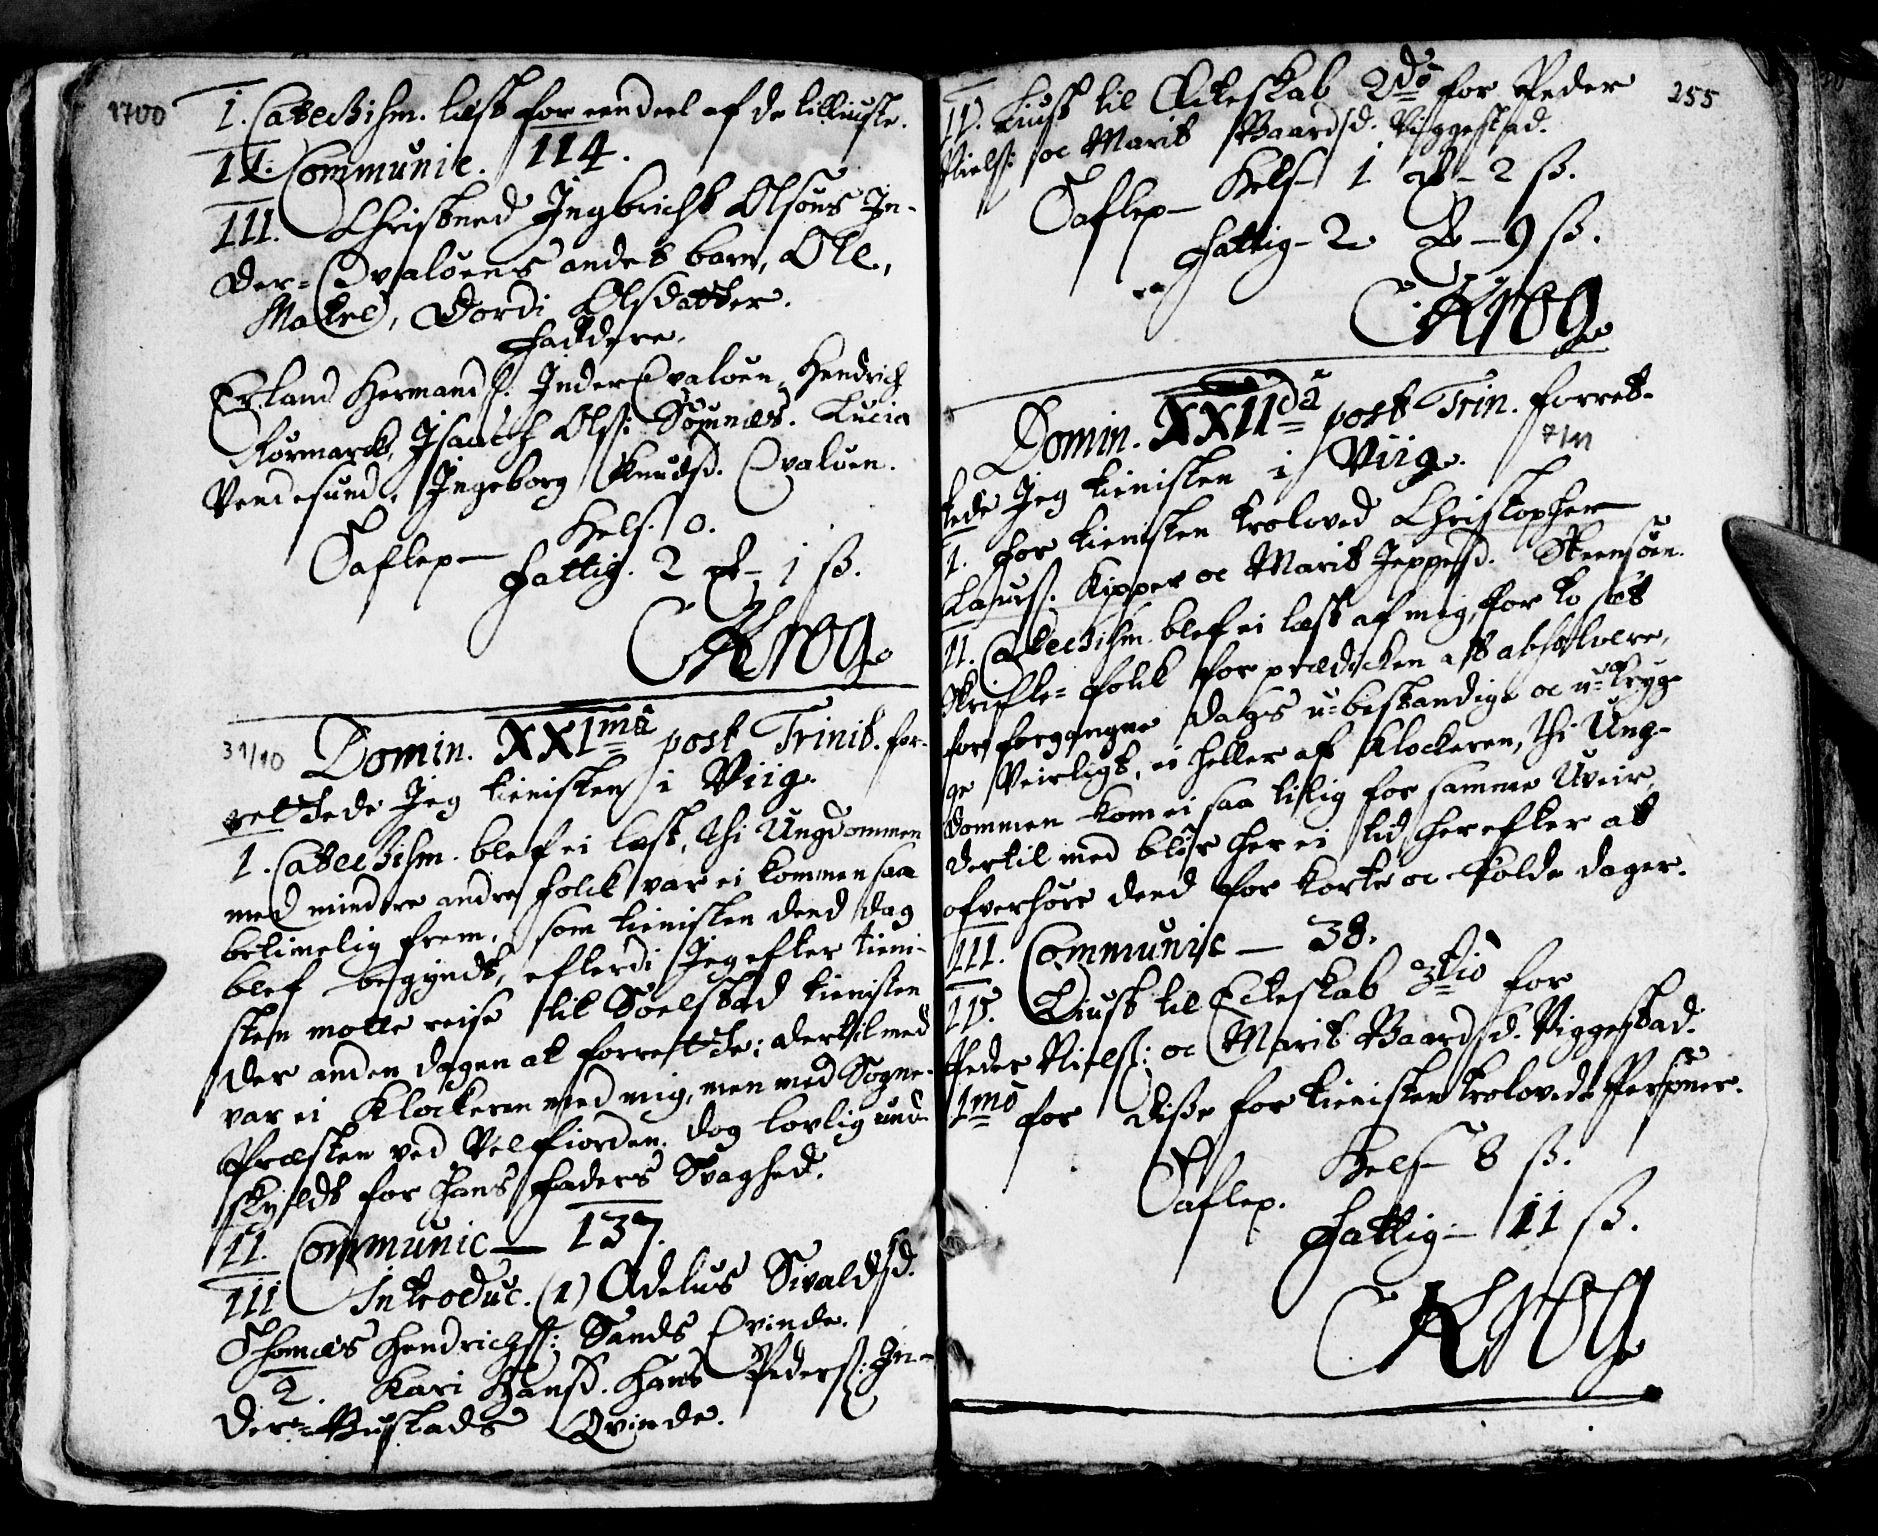 1700
I. Catechism. læst for een deel af de tilliuste.
II. Communic. 114.
III. Christned Ingbricht Olsøns In-
der-Qvaløens andet barn, Ole,
Matre, Dordi Olsdatter.
Faddere.
Erland Hermands. Inder Qvaløen, Hendrich
Rørmarck, Isaach Ols: Sømnæs. Lucia
Vendesund, Ingeborg Knudsd. Qvaløen.
Taflep— Hels. 0.
Fattig. 2 ... 1 ß.
CKrog.
31/10 Domin. XXI mâ post Trinit. for-
rettede Jeg tienisten i Viig.
I. Catechism. blef ei læst, thi Ungdommen
med mindre andre folck var ei kommen saa
betimelig frem, som tienisten dend dag
blef begyndt, efterdi Jeg efter tieni-
sten motte reise til Soelstad tienisten
der anden dagen at forrette; dertilmed
var ei Klockeren med mig, men med Sogne-
Præsten ved Velfiorden, dog lovlig und-
skyldt for hans Faders Svaghed.
II. Communic— 137.
III Introduc. (1) Adelus Sivaldsd.
Thomæs Hendrichss: Sands Qvinde.
2. Kari Hansd. Hans Pederss: In-
der-Bustads Qvinde.
255
IV. Liust til Ecteskab 2dô for Peder
Niels: oc Marit Baardsd. Viggestad.
Taflep— Hels— 1 ... 2 ß.
Fattig— 2 ... 9 ß.
CKrog.
Domin. XXII dâ post Trin. forret-
7/11
tede Jeg tienisten i Viig.
I. For tienisten troloved Christopher
Laurss. Kipper oc Marit Jeppesd. Steensøen.
II. Catechism. blef ei læst af mig, for to sæt
Skrifte-folck for prædicken at absolvere,
for forgangne dags u-bestandige oc u-tryg-
ge Veirligt, ei heller af Klockeren, thi Ung-
dommen kom ei saa tilig for samme Uveir,
dertil med blifr her ei tid herefter at
ofverhøre dend for korte oc kolde dager.
III. Communic— 38.
IV. Liust til Ecteskab 3tiô for
Peder Nielss: oc Marit Baardsd. Viggestad.
1mô for disse for tienisten trolovede Personer.
Taflep. Hels— 8 ß.
Fattig— 11 ß.
CKrog.